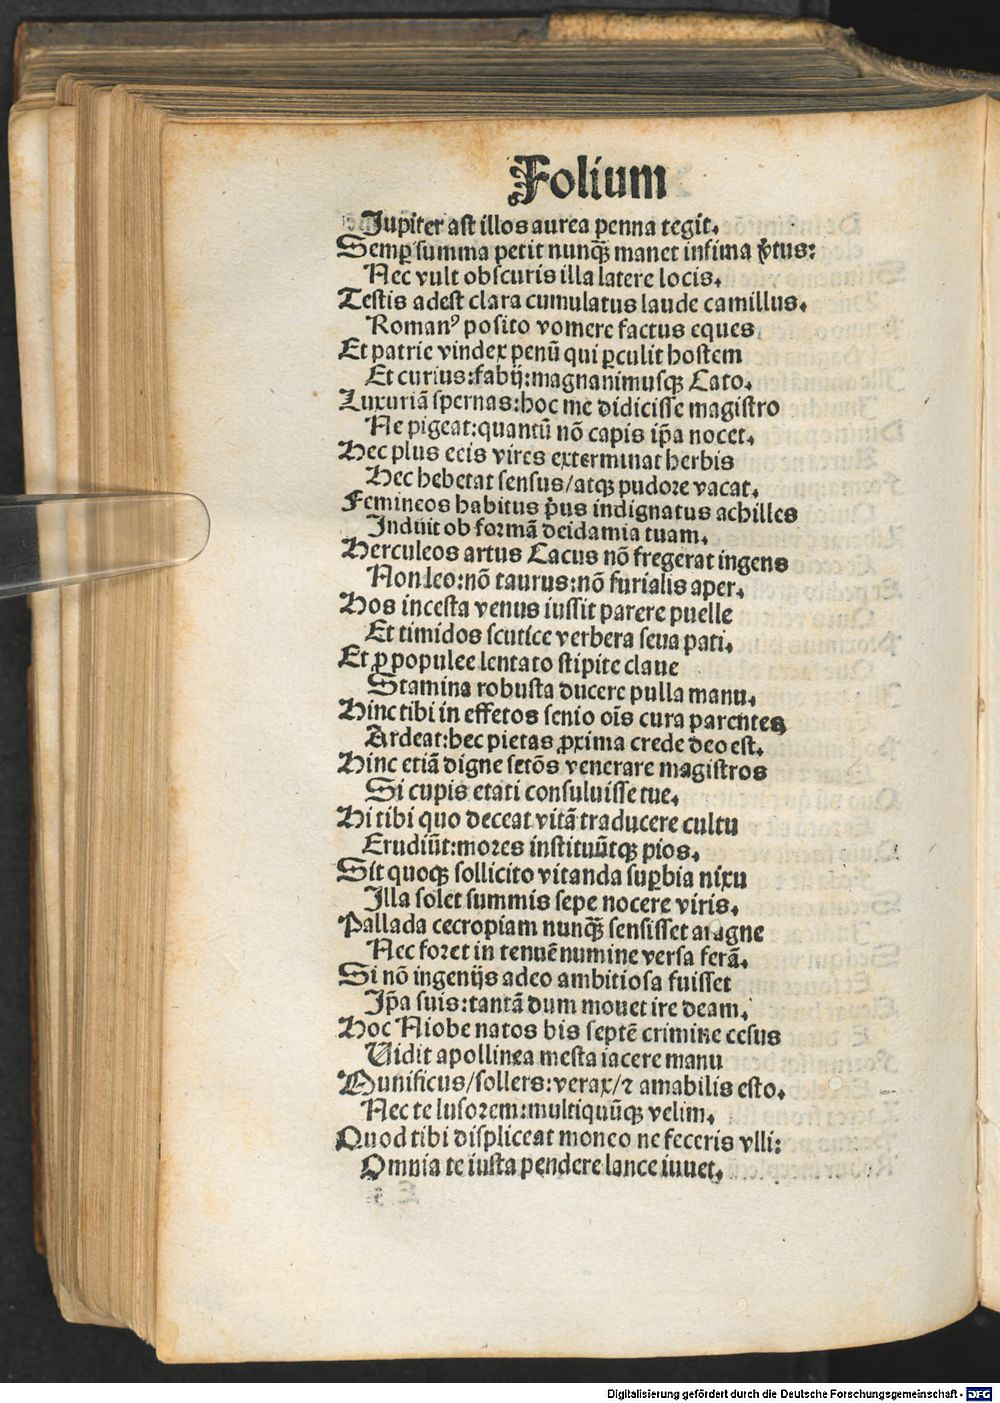 Folium
Jupiter ast illos aurea penna tegit.
Semꝑ summa petit nunqᷓ manet infima v̓tus:
Nec vult obscuris illa latere locis.
Testis adest clara cumulatus laude camillus.
Romanꝰ posito vomere factus eques.
Et patrie vindex penū qui ꝑculit hostem
Et curius:fabij:magnanimusqꝫ Cato.
Luxuriā spernas:hoc me didicisse magistro
Ne pigeat:quantū nō capis ip̄a nocet.
Hec plus eeis vires exterminat herbis
Hec hebetat sensus/atqꝫ pudore vacat.
Femineos habitus p̓us indignatus achilles
Induit ob formā deidamia tuam.
Herculeos artus Cacus nō fregerat ingens
Non leo:nō taurus:nō furialis aper.
Hos incesta venus iussit parere puelle
Et timidos scutice verbera seua pati.
Et ꝓ populee lentato stipite claue
Stamina robusta ducere pulla manu.
Hinc tibi in effetos senio oīs cura parentes
Ardeat:hec pietas ꝓxima crede deo est.
Hinc etiā digne setōs venerare magistros
Si cupis etati consuluisse tue.
Hi tibi quo deceat vitā traducere cultu
Erudiūt:mores instituūtqꝫ pios.
Sit quoqꝫ sollicito vitanda suꝑbia nixu
Illa solet summis sepe nocere viris.
Pallada cecropiam nunqᷓ sensisset aragne
Nec foret in tenuē numine versa ferā.
Si nō ingenijs adeo ambitiosa fuisset
Ip̄a suis:tantā dum mouet ire deam.
Hoc Niobe natos bis septē crimine cesus
Uidit apollinea mesta iacere manu
Munificus/sollers:verax/⁊ amabilis esto.
Nec te lusorem:multiquūqꝫ velim.
Quod tibi displiceat moneo ne feceris vlli:
Omnia te iusta pendere lance iuuet.
Digitalisierung gefördert durch die Deutsche Forschungsgemeinschaft - DFG